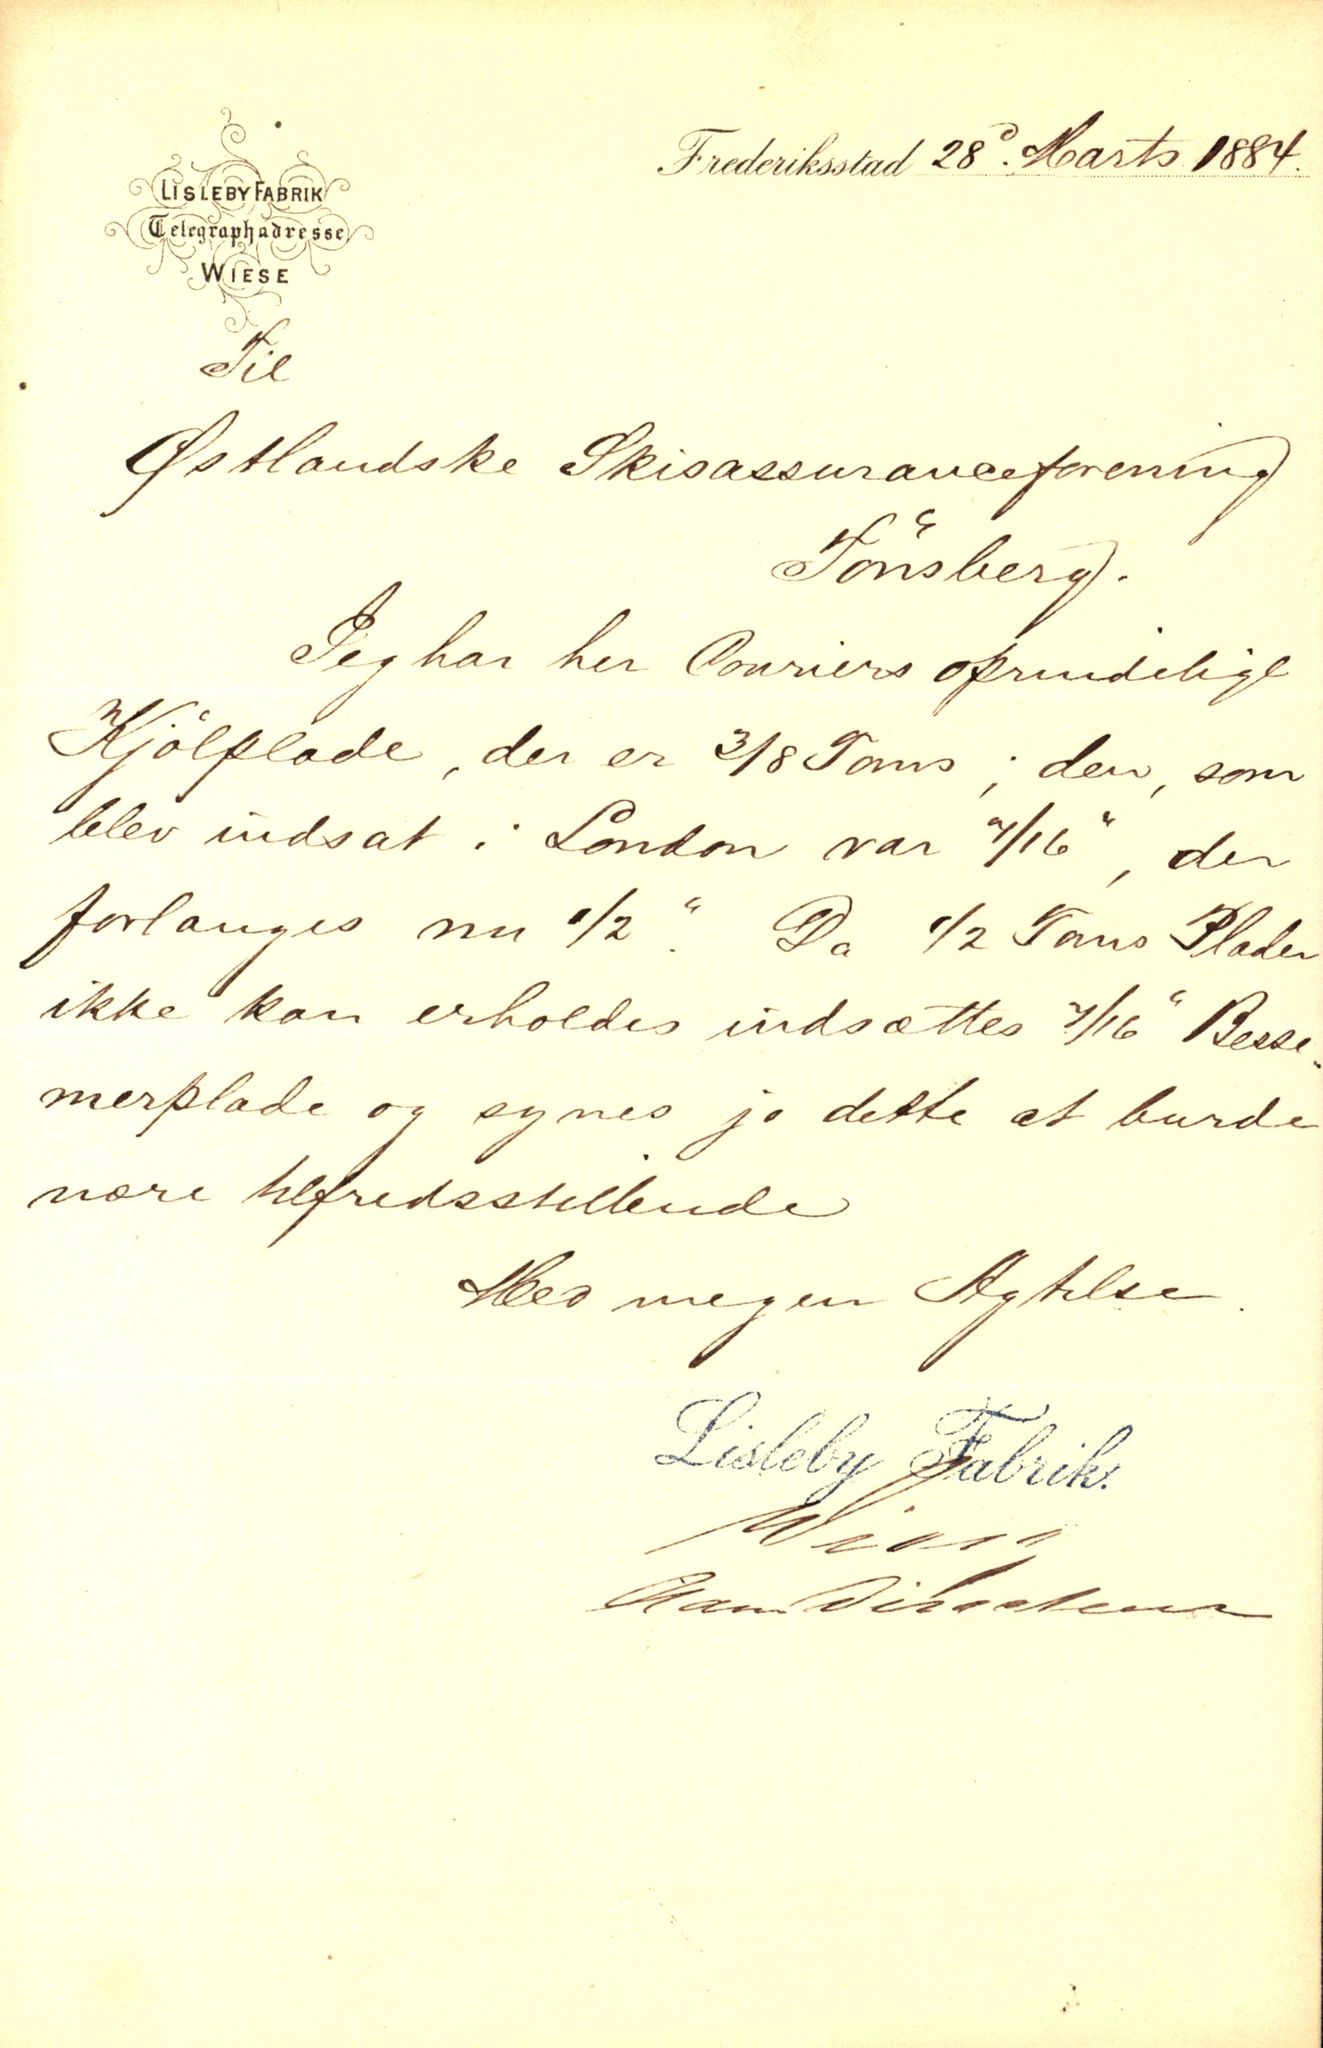 LISLEBY FABRIK
Telegraphadresse
WIESE
Frederiksstad 28d. Marts 1884.
Til
Østlandske Skibsassuranceforening
Tönsberg.
Jeg har her Couriers oprindelige
Kjölplade, der er 3/8 Toms; den, som
blev indsat i London var 7/16", der
forlanges nu 1/2". Da 1/2 Toms Plader
ikke kan erholdes indsættes 7/16" Besse-
merplade og synes jo dette at burde
være tilfredsstillende
Med megen Agtelse.
Lisleby Fabrik.
Wiese